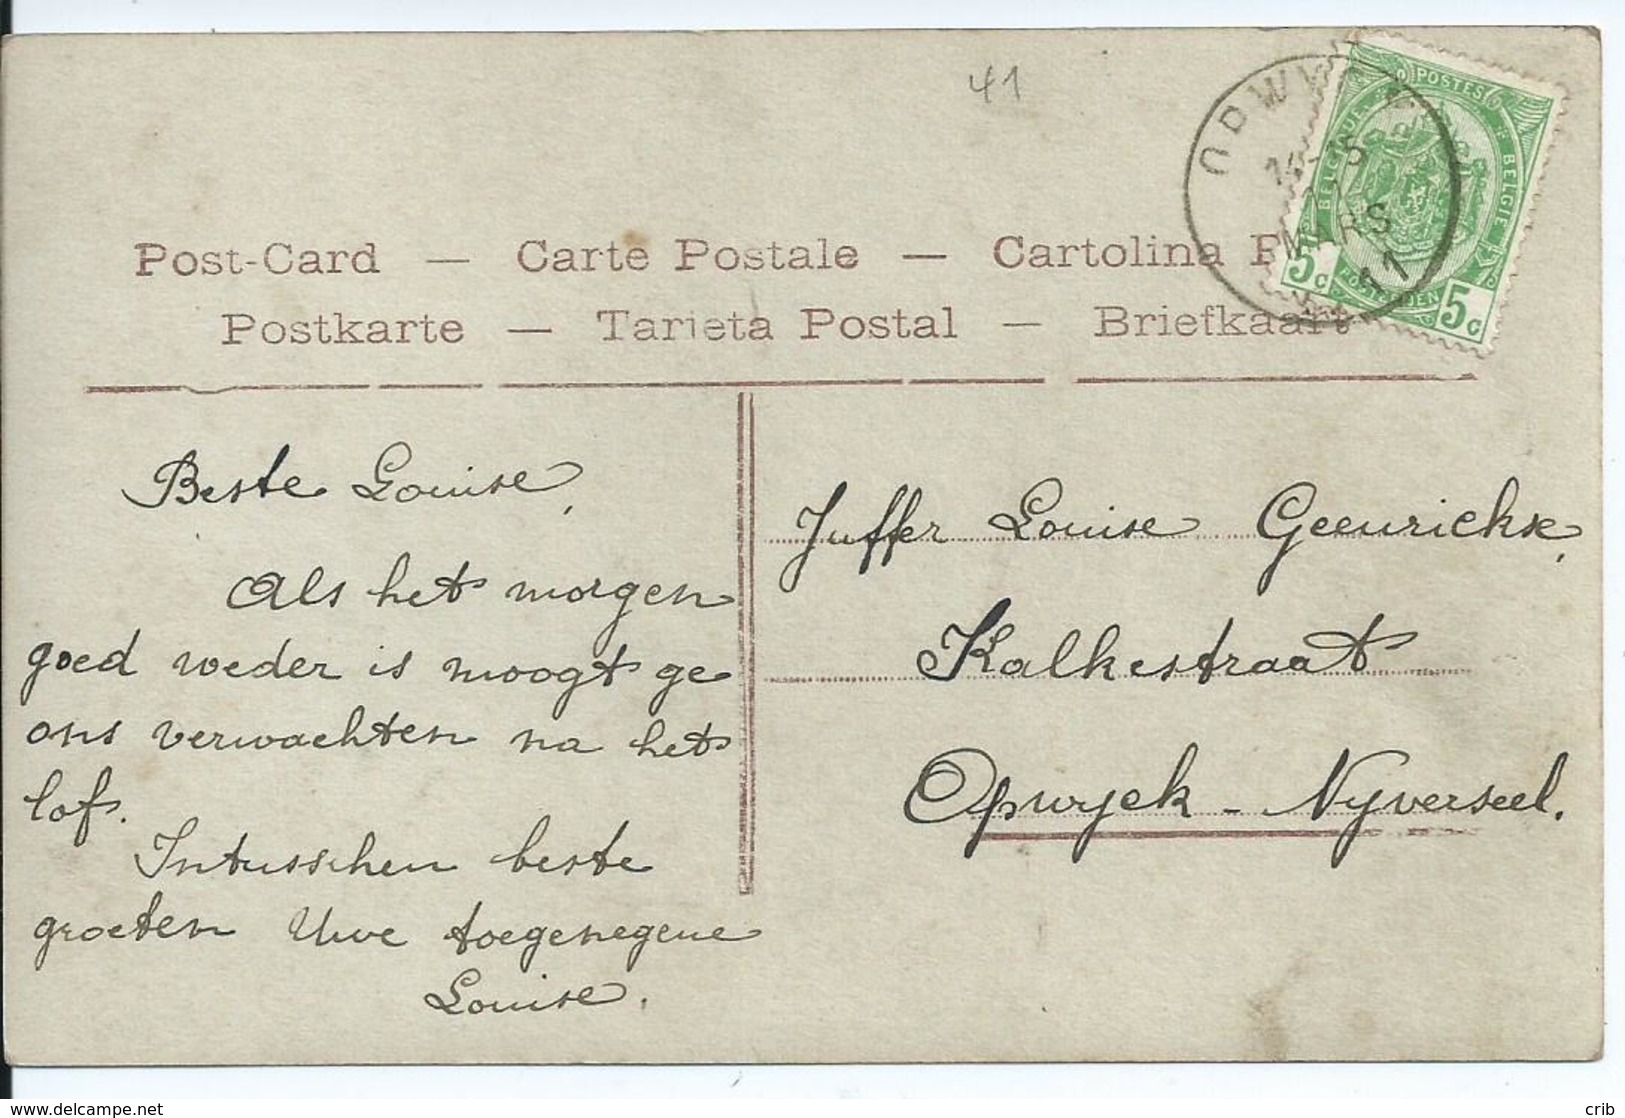 41
OPWYCK
MARS
11
POSTES
BELGIQUE
BELGIE
POSTERIJEN
5c
5c
Post-Card — Carte Postale — Cartolina
Postkarte — Tarjeta Postal — Briefkaart
Beste Louise,
Als het morgen
goed weder is moogt ge
ons verwachten na het
lof.
Intusschen beste
groeten Uwe toegenegene
Louise.
Juffer Louise Geeurickse,
Kalkestraat
Opwyck - Nyverseel.
delcampe.net
crib